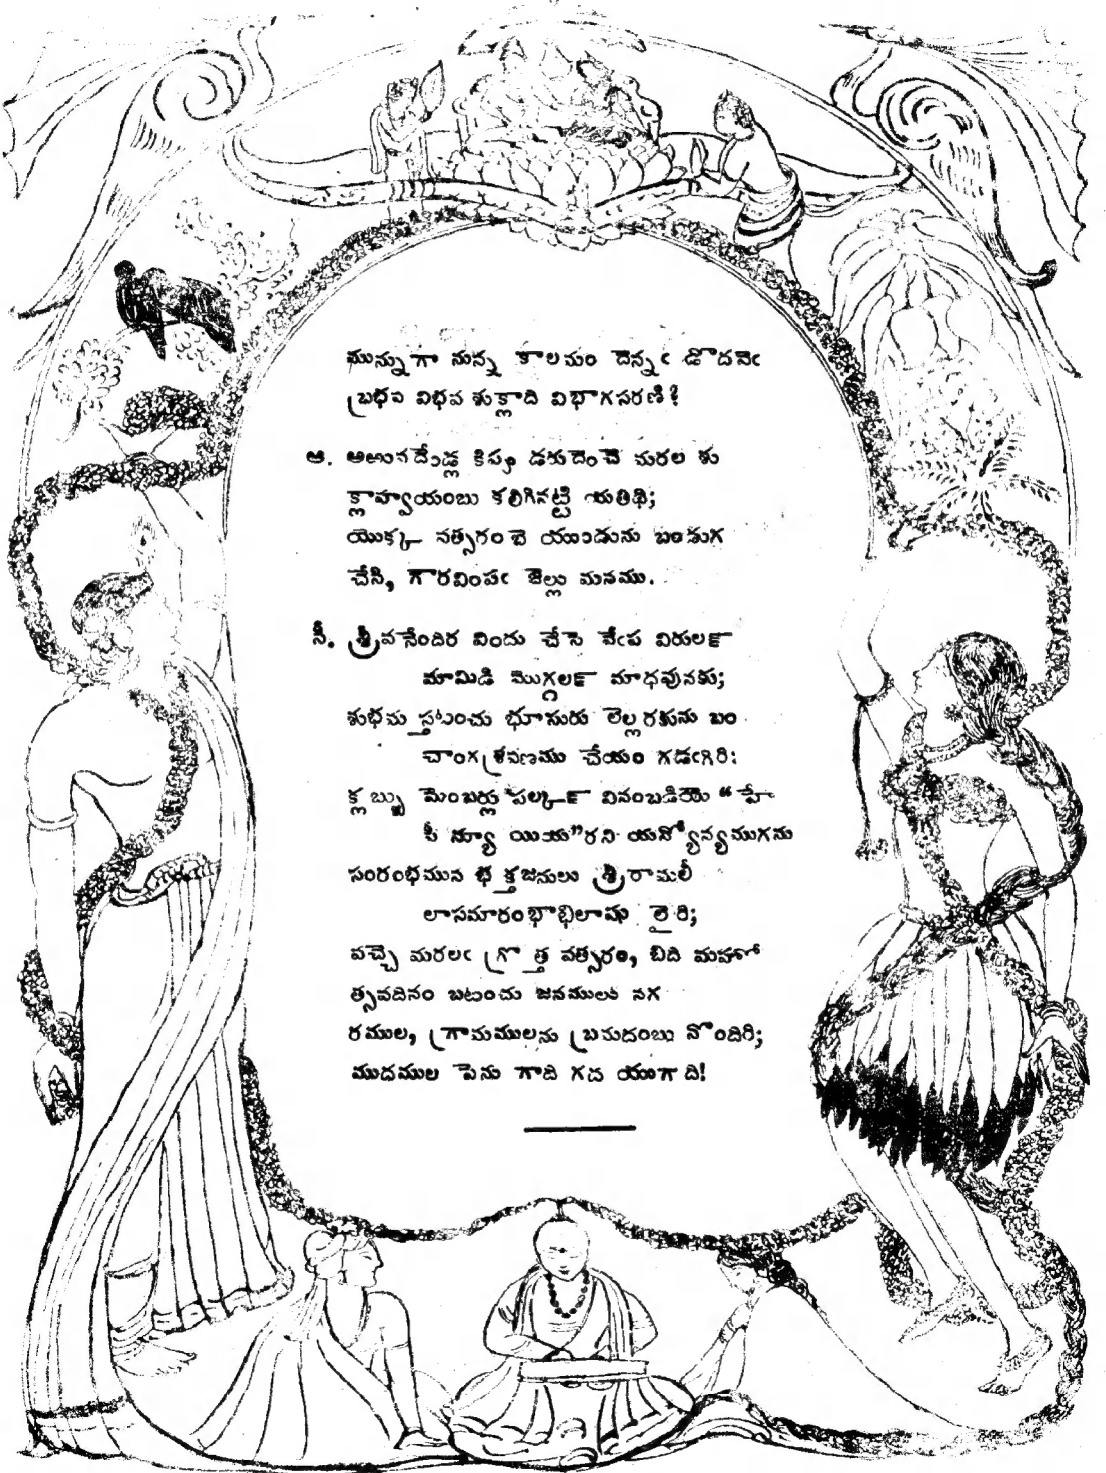 మున్నుగా నున్న కాలమం దెన్నఁ డొదవెఁ
బ్రభవ విభవ శుక్లాది విభాగసరణి?
ఆ. అఱువదేండ్ల కిప్పు డరుదెంచె మరల శు
క్లాహ్వయంబు కలిగినట్టి యతిథి;
యొక్క వత్సరం బె యుండును బండుగ
చేసి, గారవింపఁ జెల్లు మనము.
సీ. శ్రీవనేందిర విందు చేసె వేఁప విరులన్
మామిడి మొగ్గలన్ మాధవునకు;
శుభము స్తటంచు భూసురు లెల్లరకును బం
చాంగశ్రవణము చేయం గడఁగిరి;
క్లబ్బు మెంబర్లు పల్కన్ వినంబడియె "హే
పీ న్యూ యియ"రని యన్యోన్యముగను
సంరంభమున భక్తజనులు శ్రీరామలీ
లాసమారంభాభిలాషు లైరి;
వచ్చె మరలఁ గ్రొత్త వత్సరం, బిది మహో
త్సవదినం బటంచు జనములు నగ
రముల, గ్రామములను బ్రమదంబు నొందిరి;
ముదముల పెను గాది గద యుగాది!